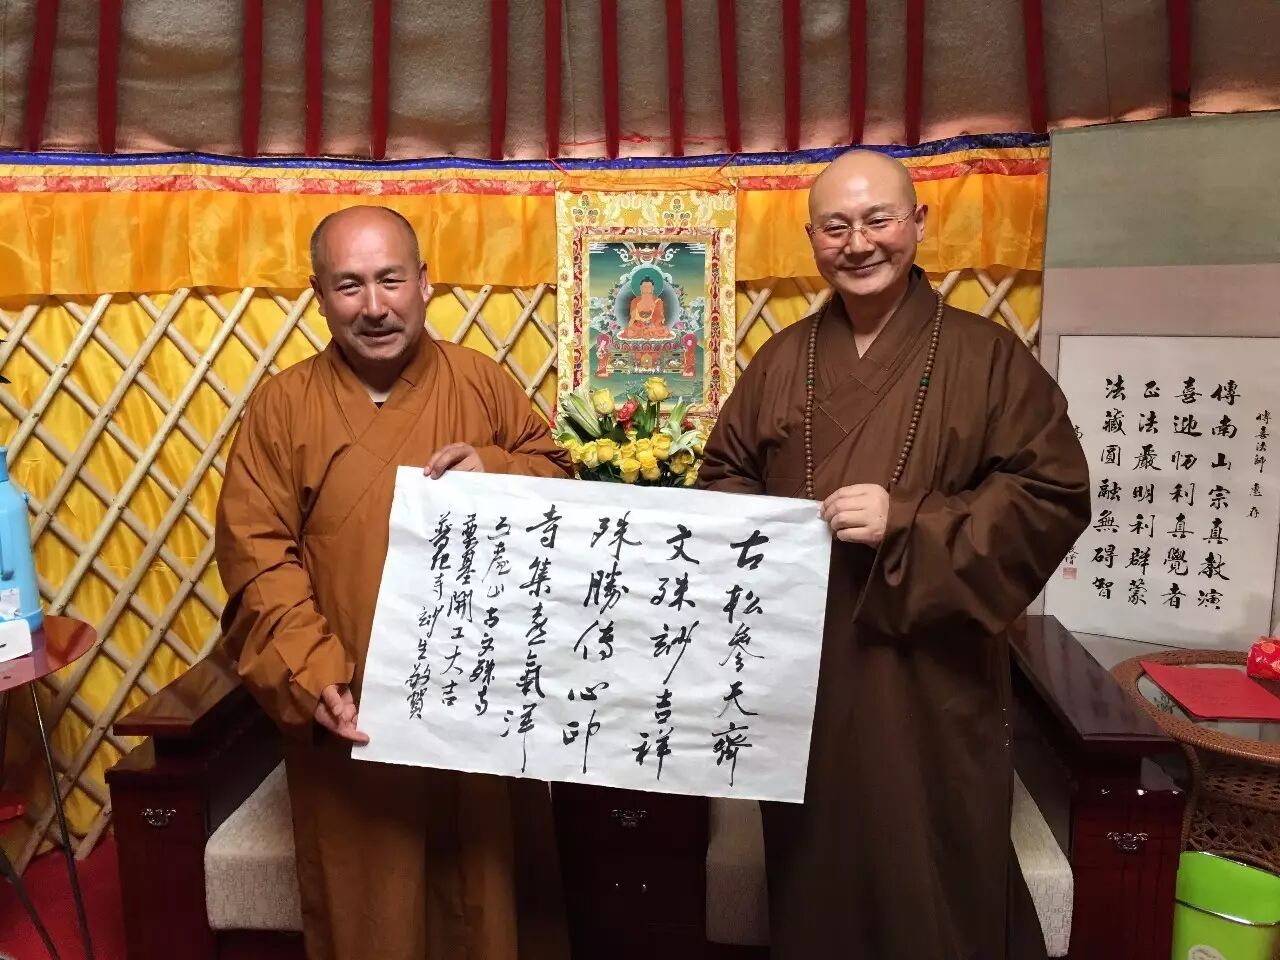 古松參天齊
文殊妙吉祥
殊勝傳心印
寺集喜氣洋
五臺山古文殊寺
奠基開工大吉
普化寺妙生敬賀
傳喜法師 惠存
傳南山宗真教演
喜迎叨利真覺者
正法嚴明利群蒙
法藏圓融無碍智